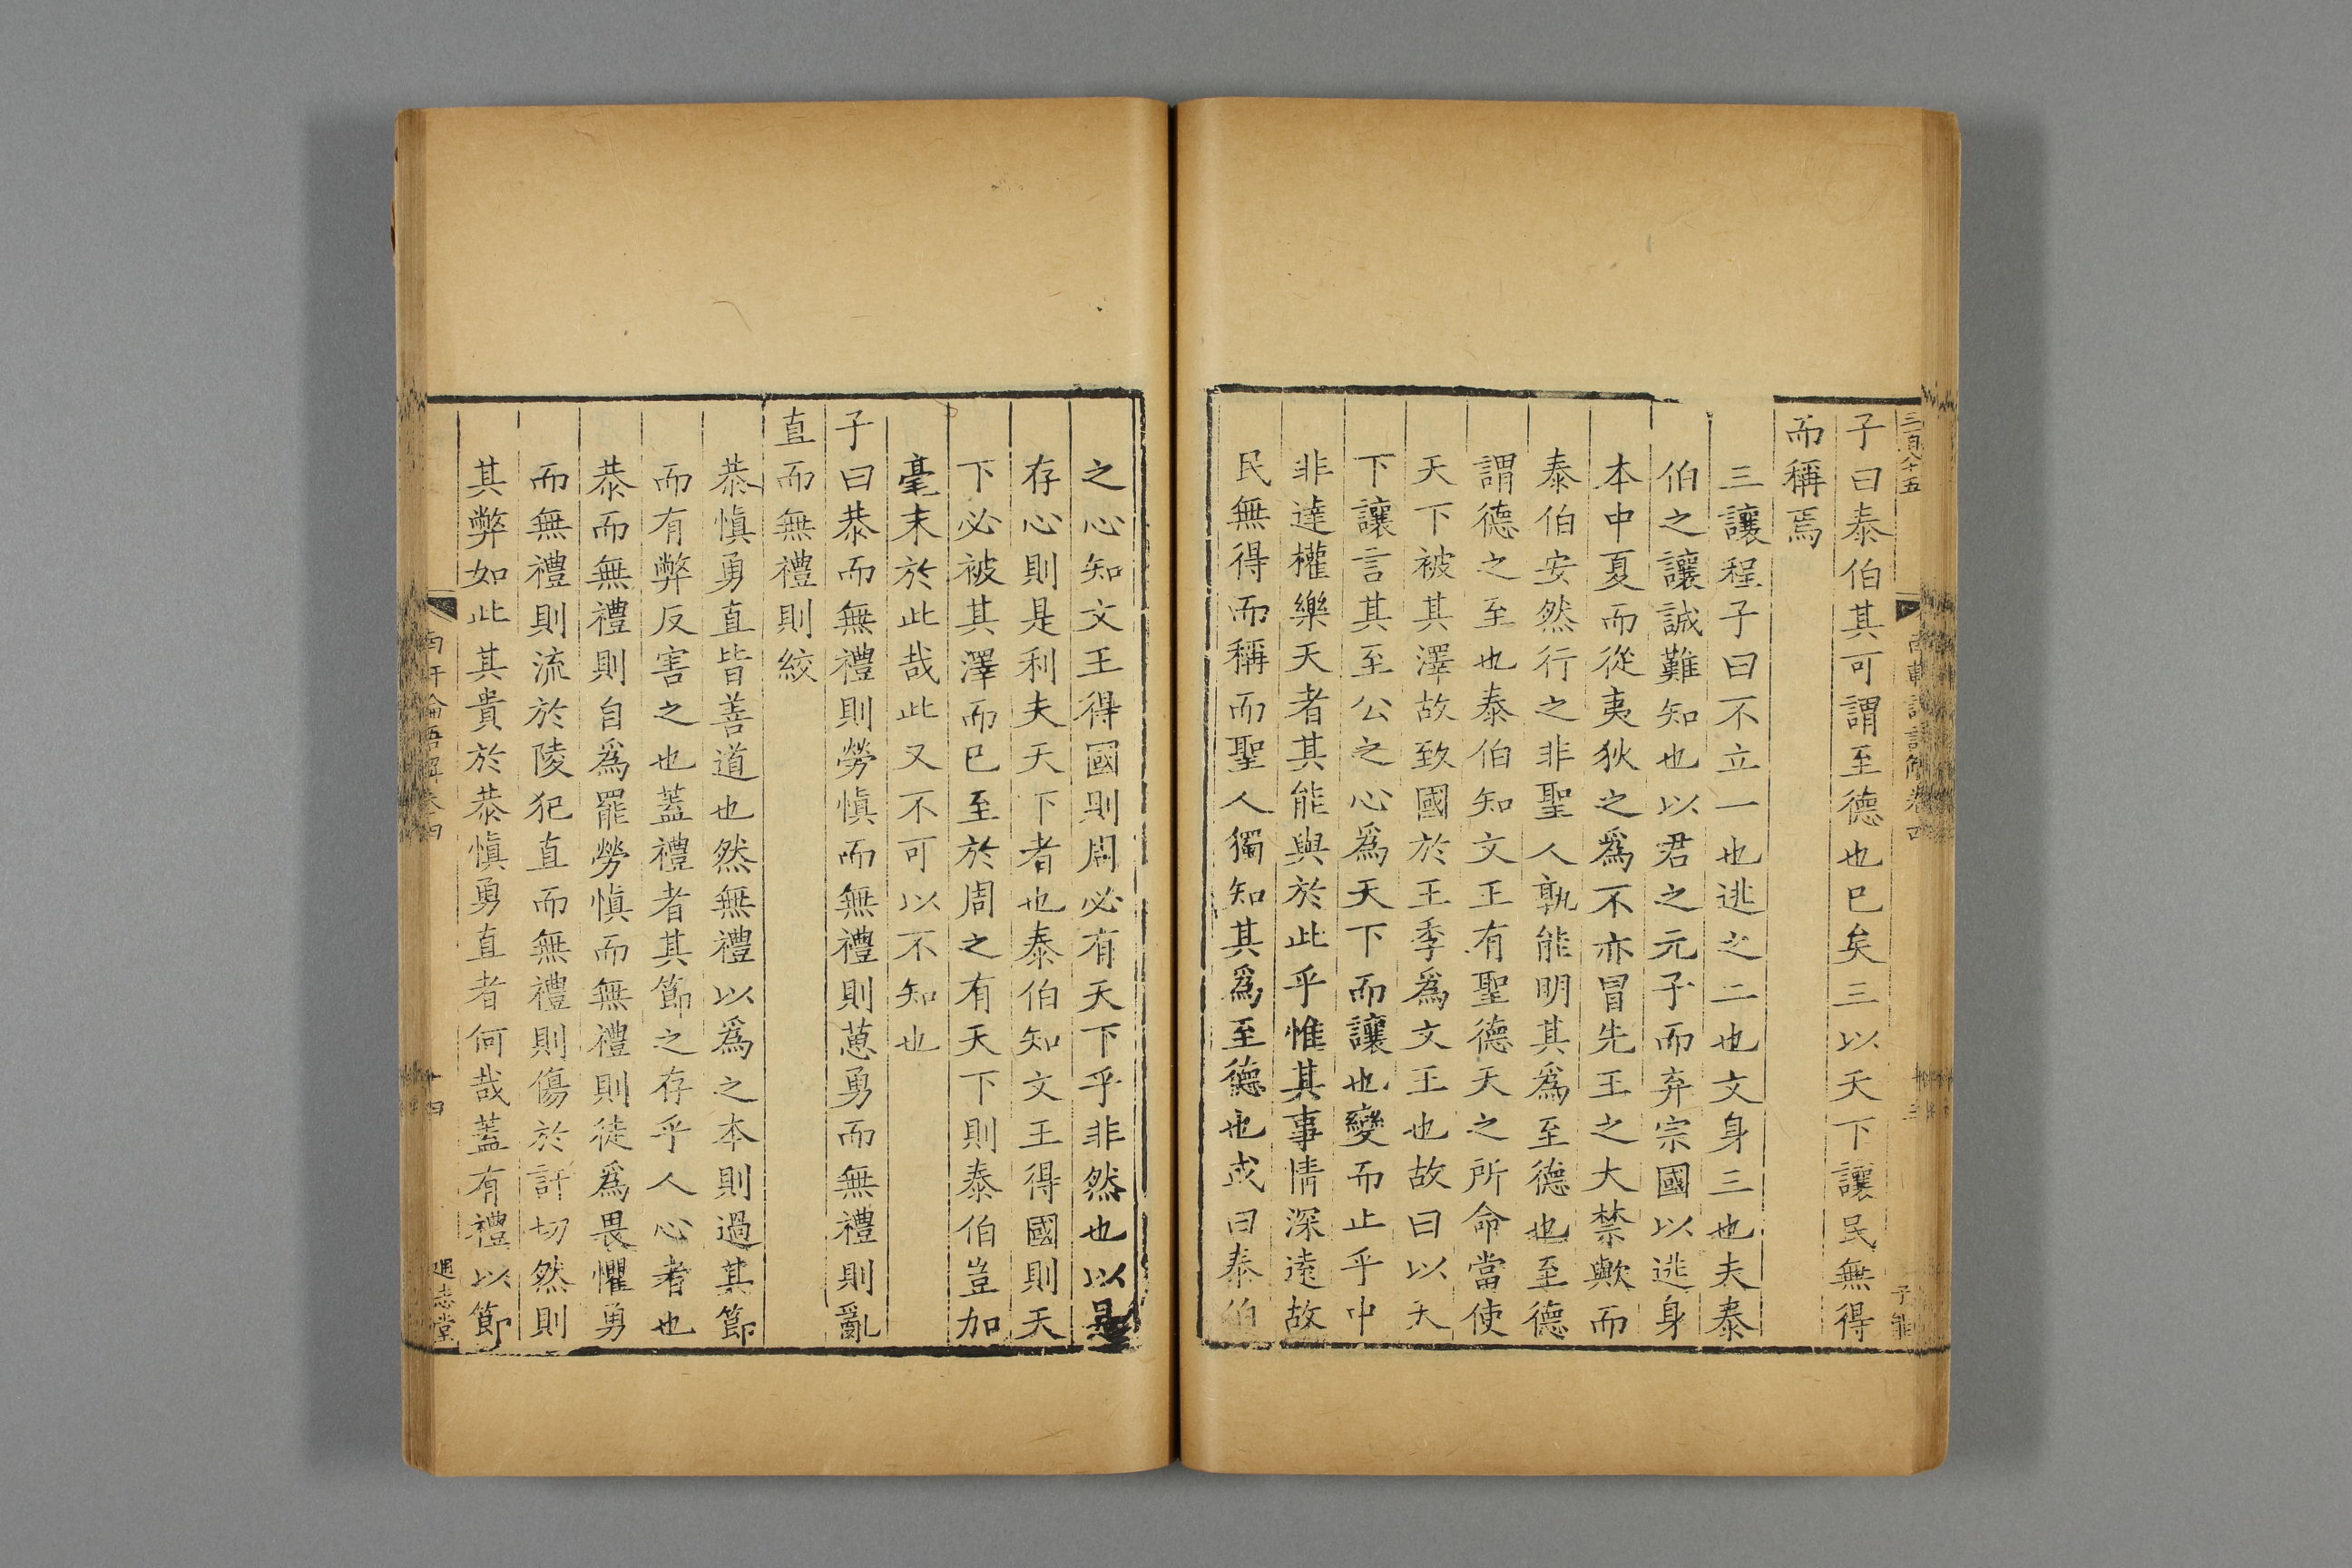 三百八十五
子曰泰伯其可謂至德也已矣三以天下讓民無得
而稱焉
三讓程子曰不立一也逃之二也文身三也夫泰
伯之讓誠難知也以君之元子而弃宗國以逃身
本中夏而從夷狄之爲不亦冒先王之大禁歟而
泰伯安然行之非聖人孰能明其爲至德也至德
謂德之至也泰伯知文王有聖德天之所命當使
天下被其澤故致國於王季爲文王也故曰以天
下讓言其至公之心爲天下而讓也變而止乎中
非達權樂天者其能與於此乎惟其事情深遠故
民無得而稱而聖人獨知其爲至德也或曰泰伯
之心知文王得國則周必有天下乎非然也以是
存心則是利夫天下者也泰伯知文王得國則天
下必被其澤而已至於周之有天下則泰伯豈加
毫末於此哉此又不可以不知也
子曰恭而無禮則勞愼而無禮則葸勇而無禮則亂
直而無禮則絞
恭愼勇直皆善道也然無禮以爲之本則過其節
而有弊反害之也蓋禮者其節之存乎人心者也
恭而無禮則自爲罷勞愼而無禮則徒爲畏懼勇
而無禮則流於陵犯直而無禮則傷於訐切然則
其弊如此其貴於恭愼勇直者何哉蓋有禮以節
南軒論語解卷四
十四
通志堂